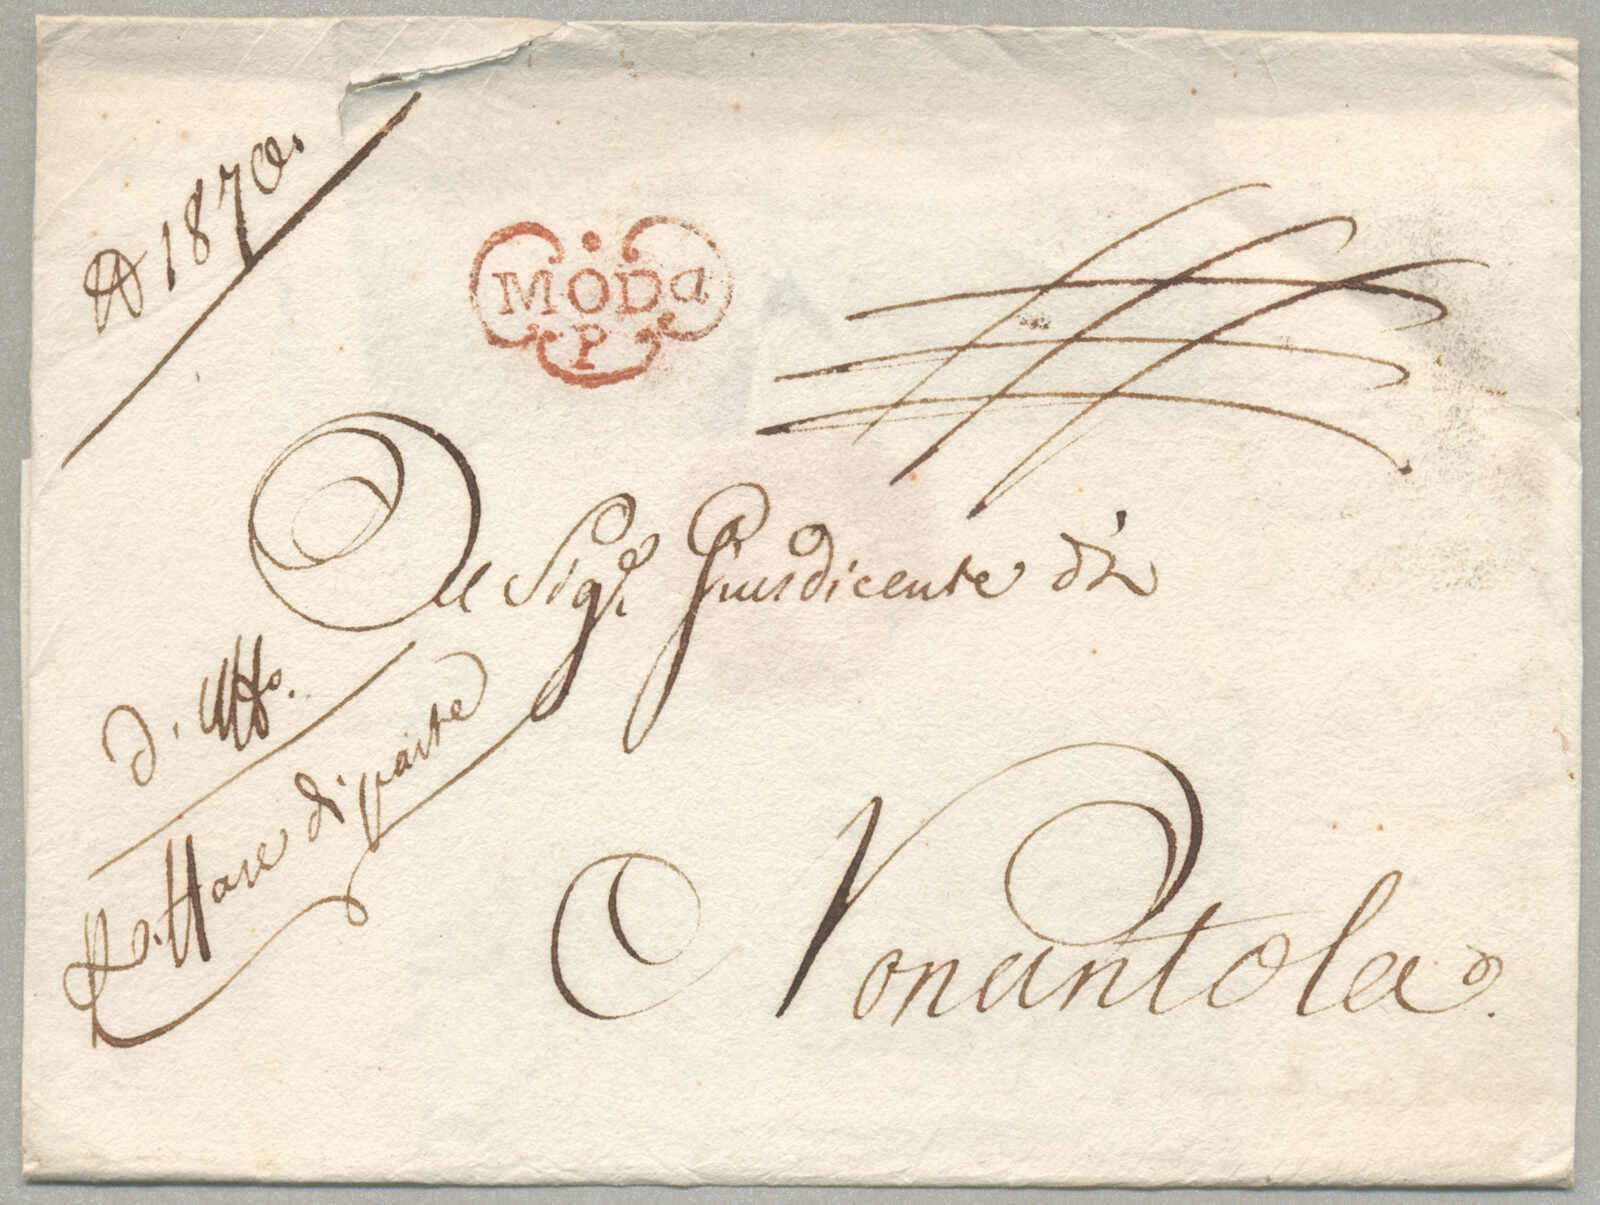 N 1870.
MODa
P
Al Sigr. Giusdicente di
d'Uffo.
Affare di parte
Nonantola.